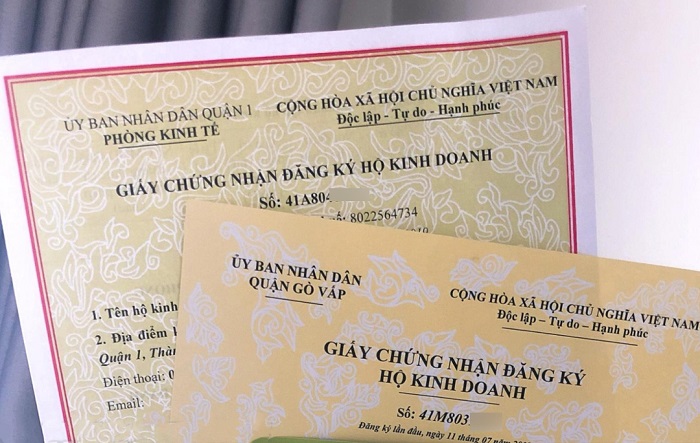 ỦY BAN NHÂN DÂN QUẬN 1
PHÒNG KINH TẾ
CỘNG HÒA XÃ HỘI CHỦ NGHĨA VIỆT NAM
Độc lập - Tự do - Hạnh phúc
GIẤY CHỨNG NHẬN ĐĂNG KÝ HỘ KINH DOANH
Số: 41A80
số: 8022564734
1. Tên hộ kinh
2. Địa điểm
Quận 1, Thàn
Điện thoại: 0
Email:
ỦY BAN NHÂN DÂN
QUẬN GÒ VẤP
CỘNG HÒA XÃ HỘI CHỦ NGHĨA VIỆT NAM
Độc lập – Tự do – Hạnh phúc
GIẤY CHỨNG NHẬN ĐĂNG KÝ
HỘ KINH DOANH
Số: 41M803
Đăng ký lần đầu, ngày 11 tháng 07 năm